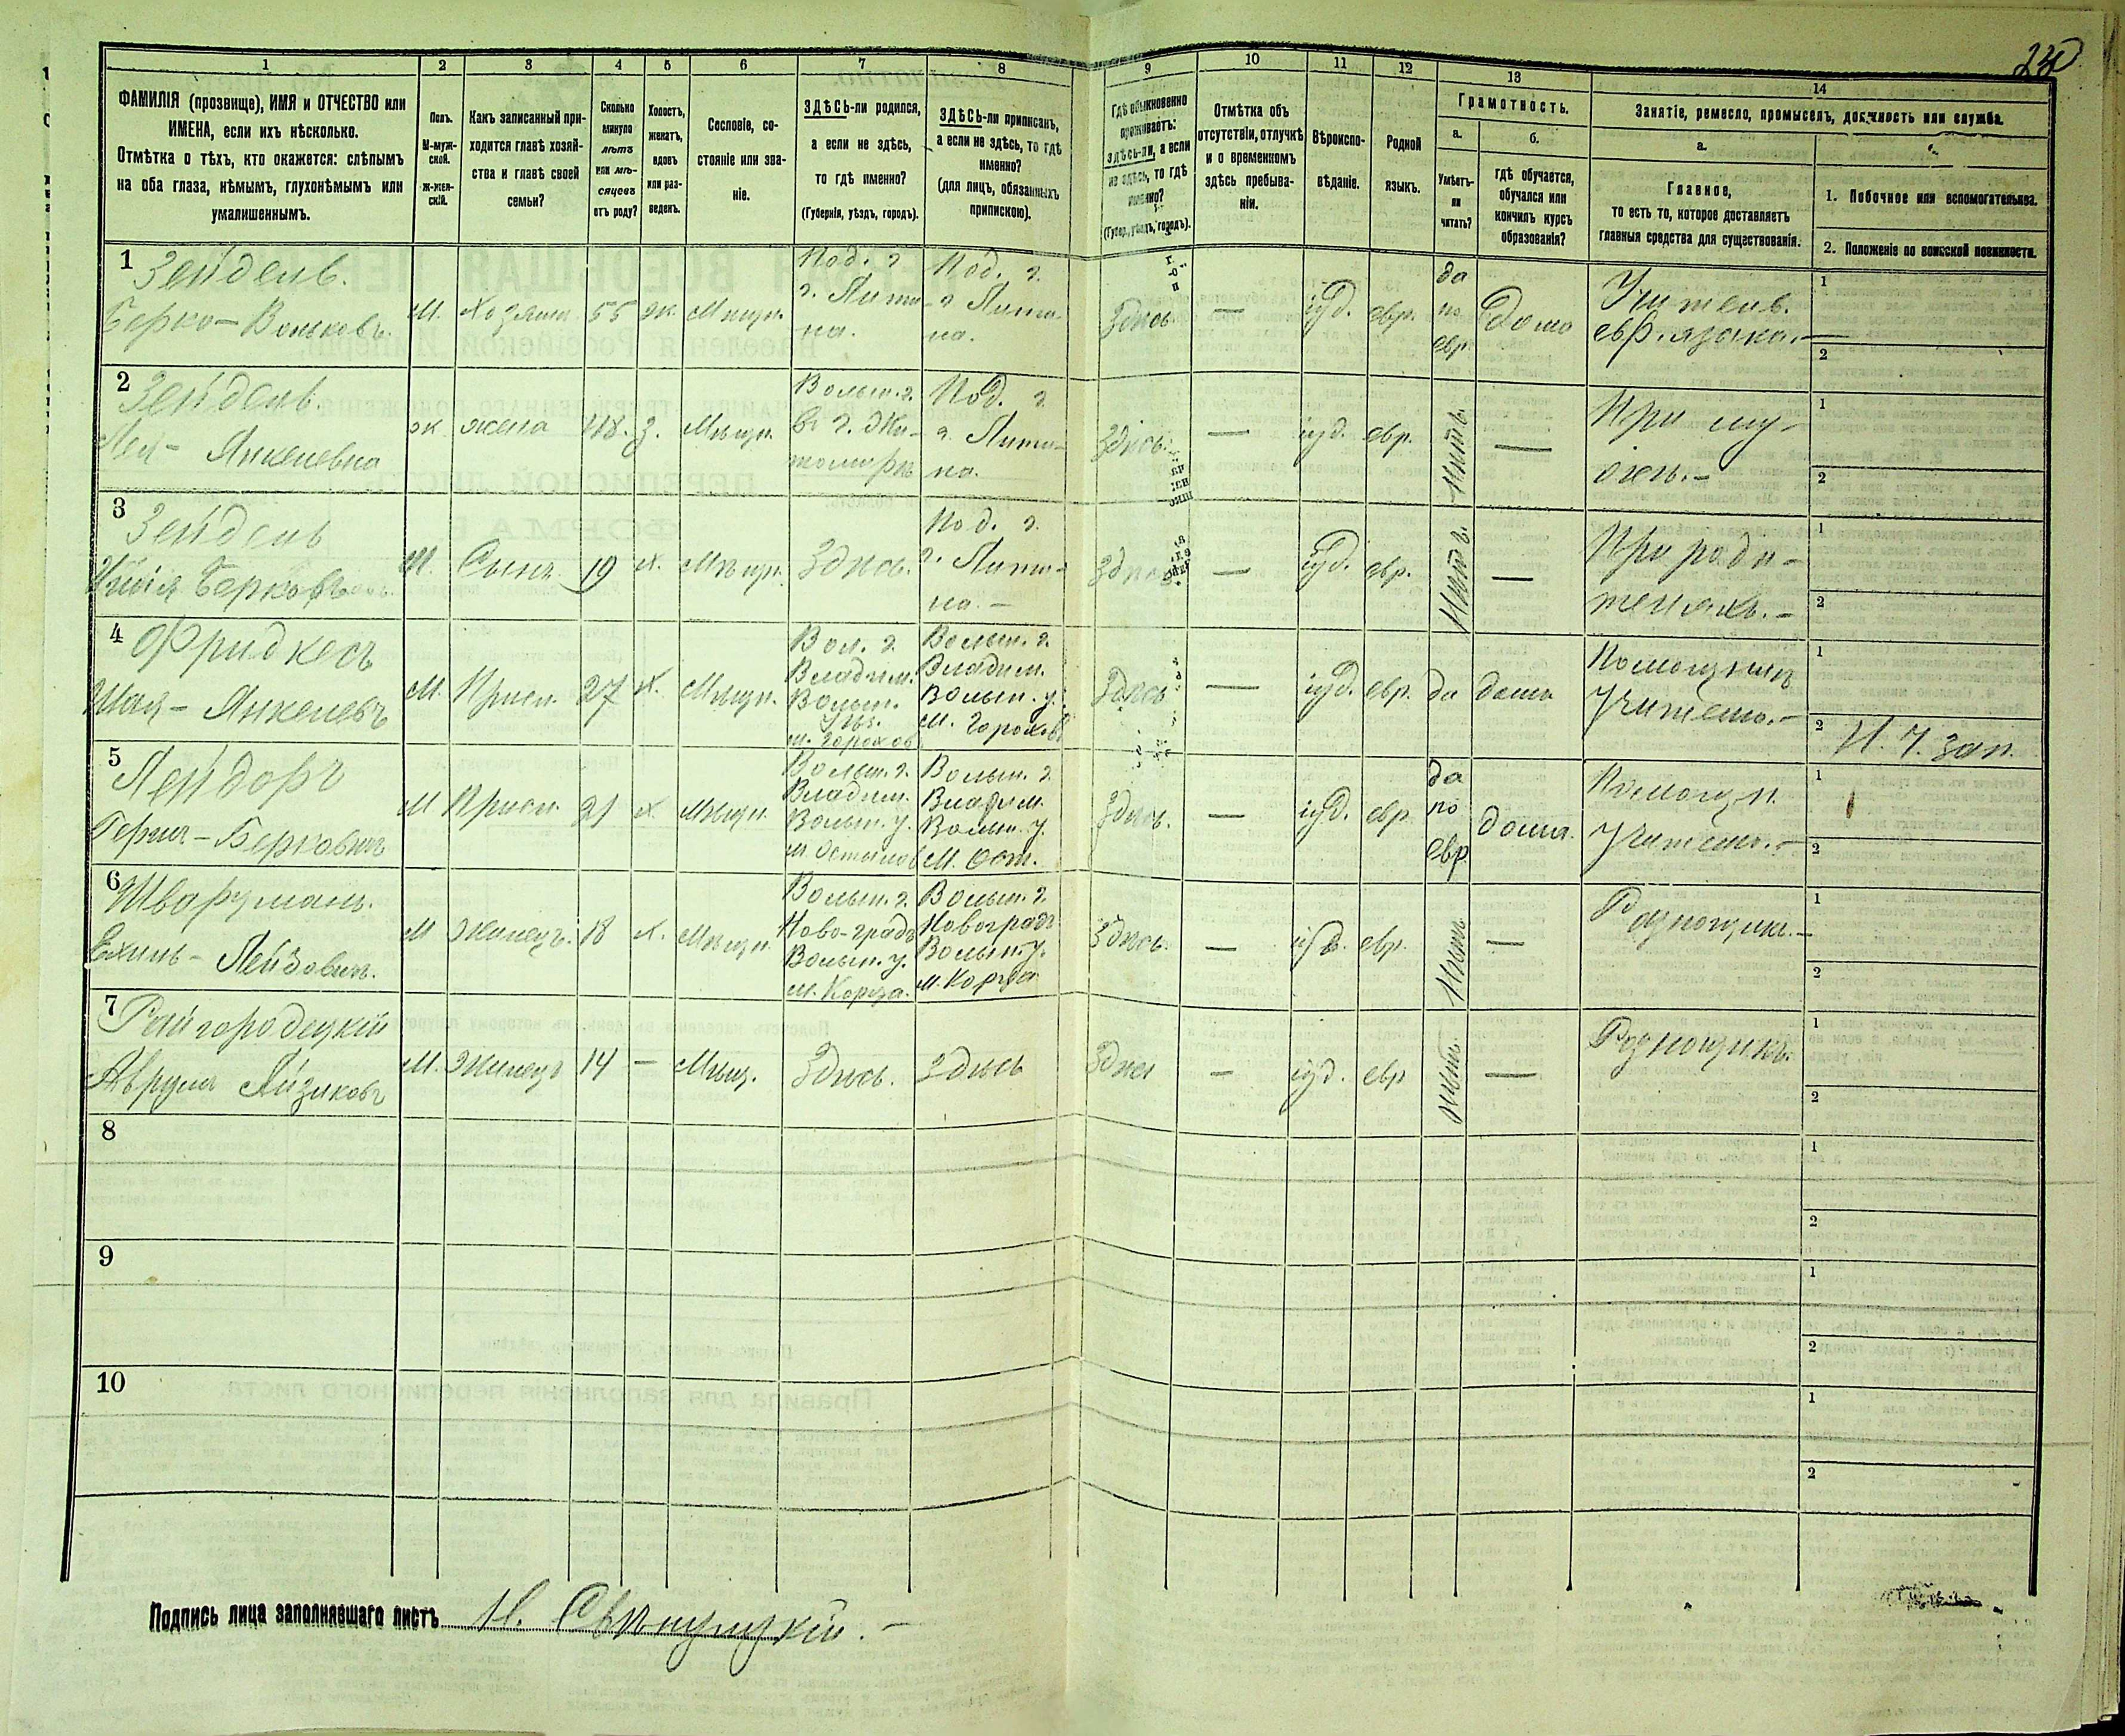 230
1 2 3 4 5 6 7 8 9 10 11 12 13 14
ФАМИЛІЯ (прозвище), ИМЯ и ОТЧЕСТВО или
ИМЕНА, если ихъ нѣсколько.
Отмѣтка о тѣхъ, кто окажется: слѣпымъ
на оба глаза, нѣмымъ, глухонѣмымъ или
умалишеннымъ.
Полъ.
М-муж-
ской.
Ж-жен-
скій.
Какъ записанный при-
ходится главѣ хозяй-
ства и главѣ своей
семьи?
Сколько
минуло
лѣтъ
или мѣ-
сяцевъ
отъ роду?
Холостъ,
женатъ,
вдовъ
или раз-
веденъ.
Сословіе, со-
стояніе или зва-
ніе.
ЗДѢСЬ-ли родился,
а если не здѣсь,
то гдѣ именно?
(Губернія, уѣздъ, городъ).
ЗДѢСЬ-ли приписанъ,
а если не здѣсь, то гдѣ
именно?
(для лицъ, обязанныхъ
припискою).
Гдѣ обыкновенно
проживаетъ:
здѣсь-ли, а если
не здѣсь, то гдѣ
именно?
(Губер., уѣздъ, городъ).
Отмѣтка объ
отсутствіи, отлучкѣ
и о временномъ
здѣсь пребыва-
ніи.
Вѣроиспо-
вѣданіе.
Родной
языкъ.
Грамотность.
а.
Умѣетъ-
ли
читать?
б.
гдѣ обучается,
обучался или
кончилъ курсъ
образованія?
Занятіе, ремесло, промыселъ, должность или служба.
а.
Главное,
то есть то, которое доставляетъ
главныя средства для существованія.
1. Побочное или вспомогательное.
2. Положеніе по воинской повинности.
1 Зейдель.
Берко - Вольковъ.
М. Хозяинъ 55 ж. Мѣщ.
Под. г.
г. Лити-
на.
Под. г.
г. Лити-
на.
Здѣсь. — іуд. евр.
да
по
евр.
Дома
Учитель.
евр. языка.
1
2
2 Зейдель.
Лея - Янкелевна
ж жена 48. з. Мѣщ.
Волын. г.
въ г. Жи-
томирѣ
Под. г.
г. Лити-
на.
Здѣсь. — іуд. евр. Нѣтъ. —
При му-
жѣ. -
1
2
3 Зейдель
Берковъ
М. Сынъ. 19 х. Мѣщ. Здѣсь.
Под. г.
г. Лити-
на. -
Здѣсь — іуд. евр. Нѣтъ. —
При роди-
теляхъ. -
1
2
4 Фридкесъ
Шая - Янкелевъ
М. Присл. 27 х. Мѣщ.
Вол. г.
Владим.
Волын.
Уѣз.
м. Горохов
Волын. г.
Владим.
Волын. у.
м. Горохов
Здѣсь — іуд. евр. да дома
Помощникъ
Учителю. -
1
2 Н. Ч. зап.
5 Лейдоръ
Герши - Берковичъ
М Присл. 21 х. Мѣщ.
Волын. г.
Владим.
Волын. у.
м. Остылов
Волын. г.
Владим.
Волын. у.
м. Ост.
Здѣсь. — іуд. евр
да
по
евр.
дома.
Помощн.
Учителю. -
1
2
6 Шварцманъ.
Ехиль - Лейзовичъ.
М Жилецъ. 18 х. Мѣщ.
Волын. г.
Ново-градъ
Волын. у.
м. Корца.
Волын. г.
Новоградъ
Волын. у.
м. Корца
Здѣсь. — іуд. евр. Нѣтъ —
Разнощикъ. -
1
2
7 Райгородецкій
Аврумъ Айзиковъ
М. Жилецъ 14 — Мѣщ. Здѣсь. Здѣсь
Здѣсь — іуд. евр Нѣтъ. —
Разнощикъ.
1
2
8
1
2
9
1
2
10
1
2
Подпись лица заполнявшаго листъ